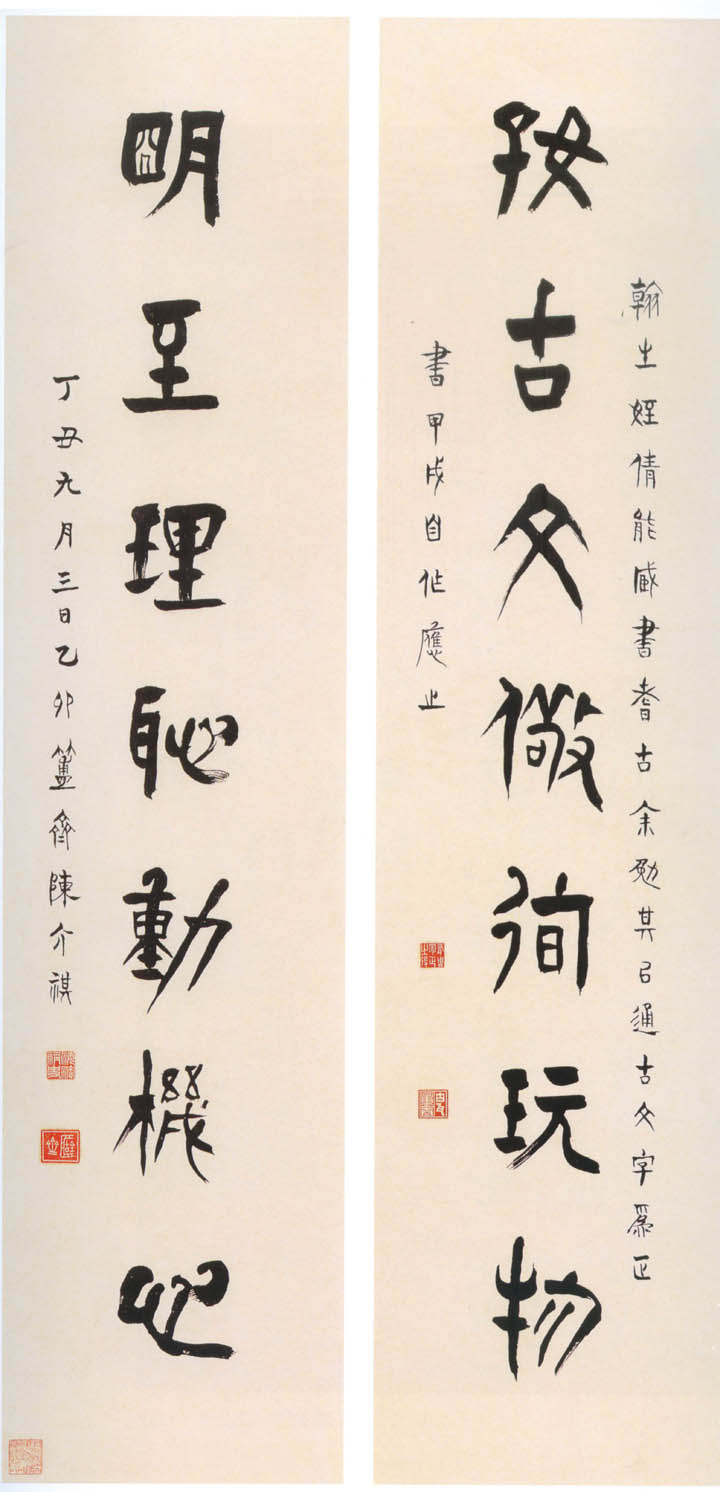 翰生姪倩能臧書耆古余勉其㠯通古文字為正
好古文儆徇玩物
書甲戌自作應之
明至理恥動機心
丁丑九月三日乙卯簠齋陳介祺